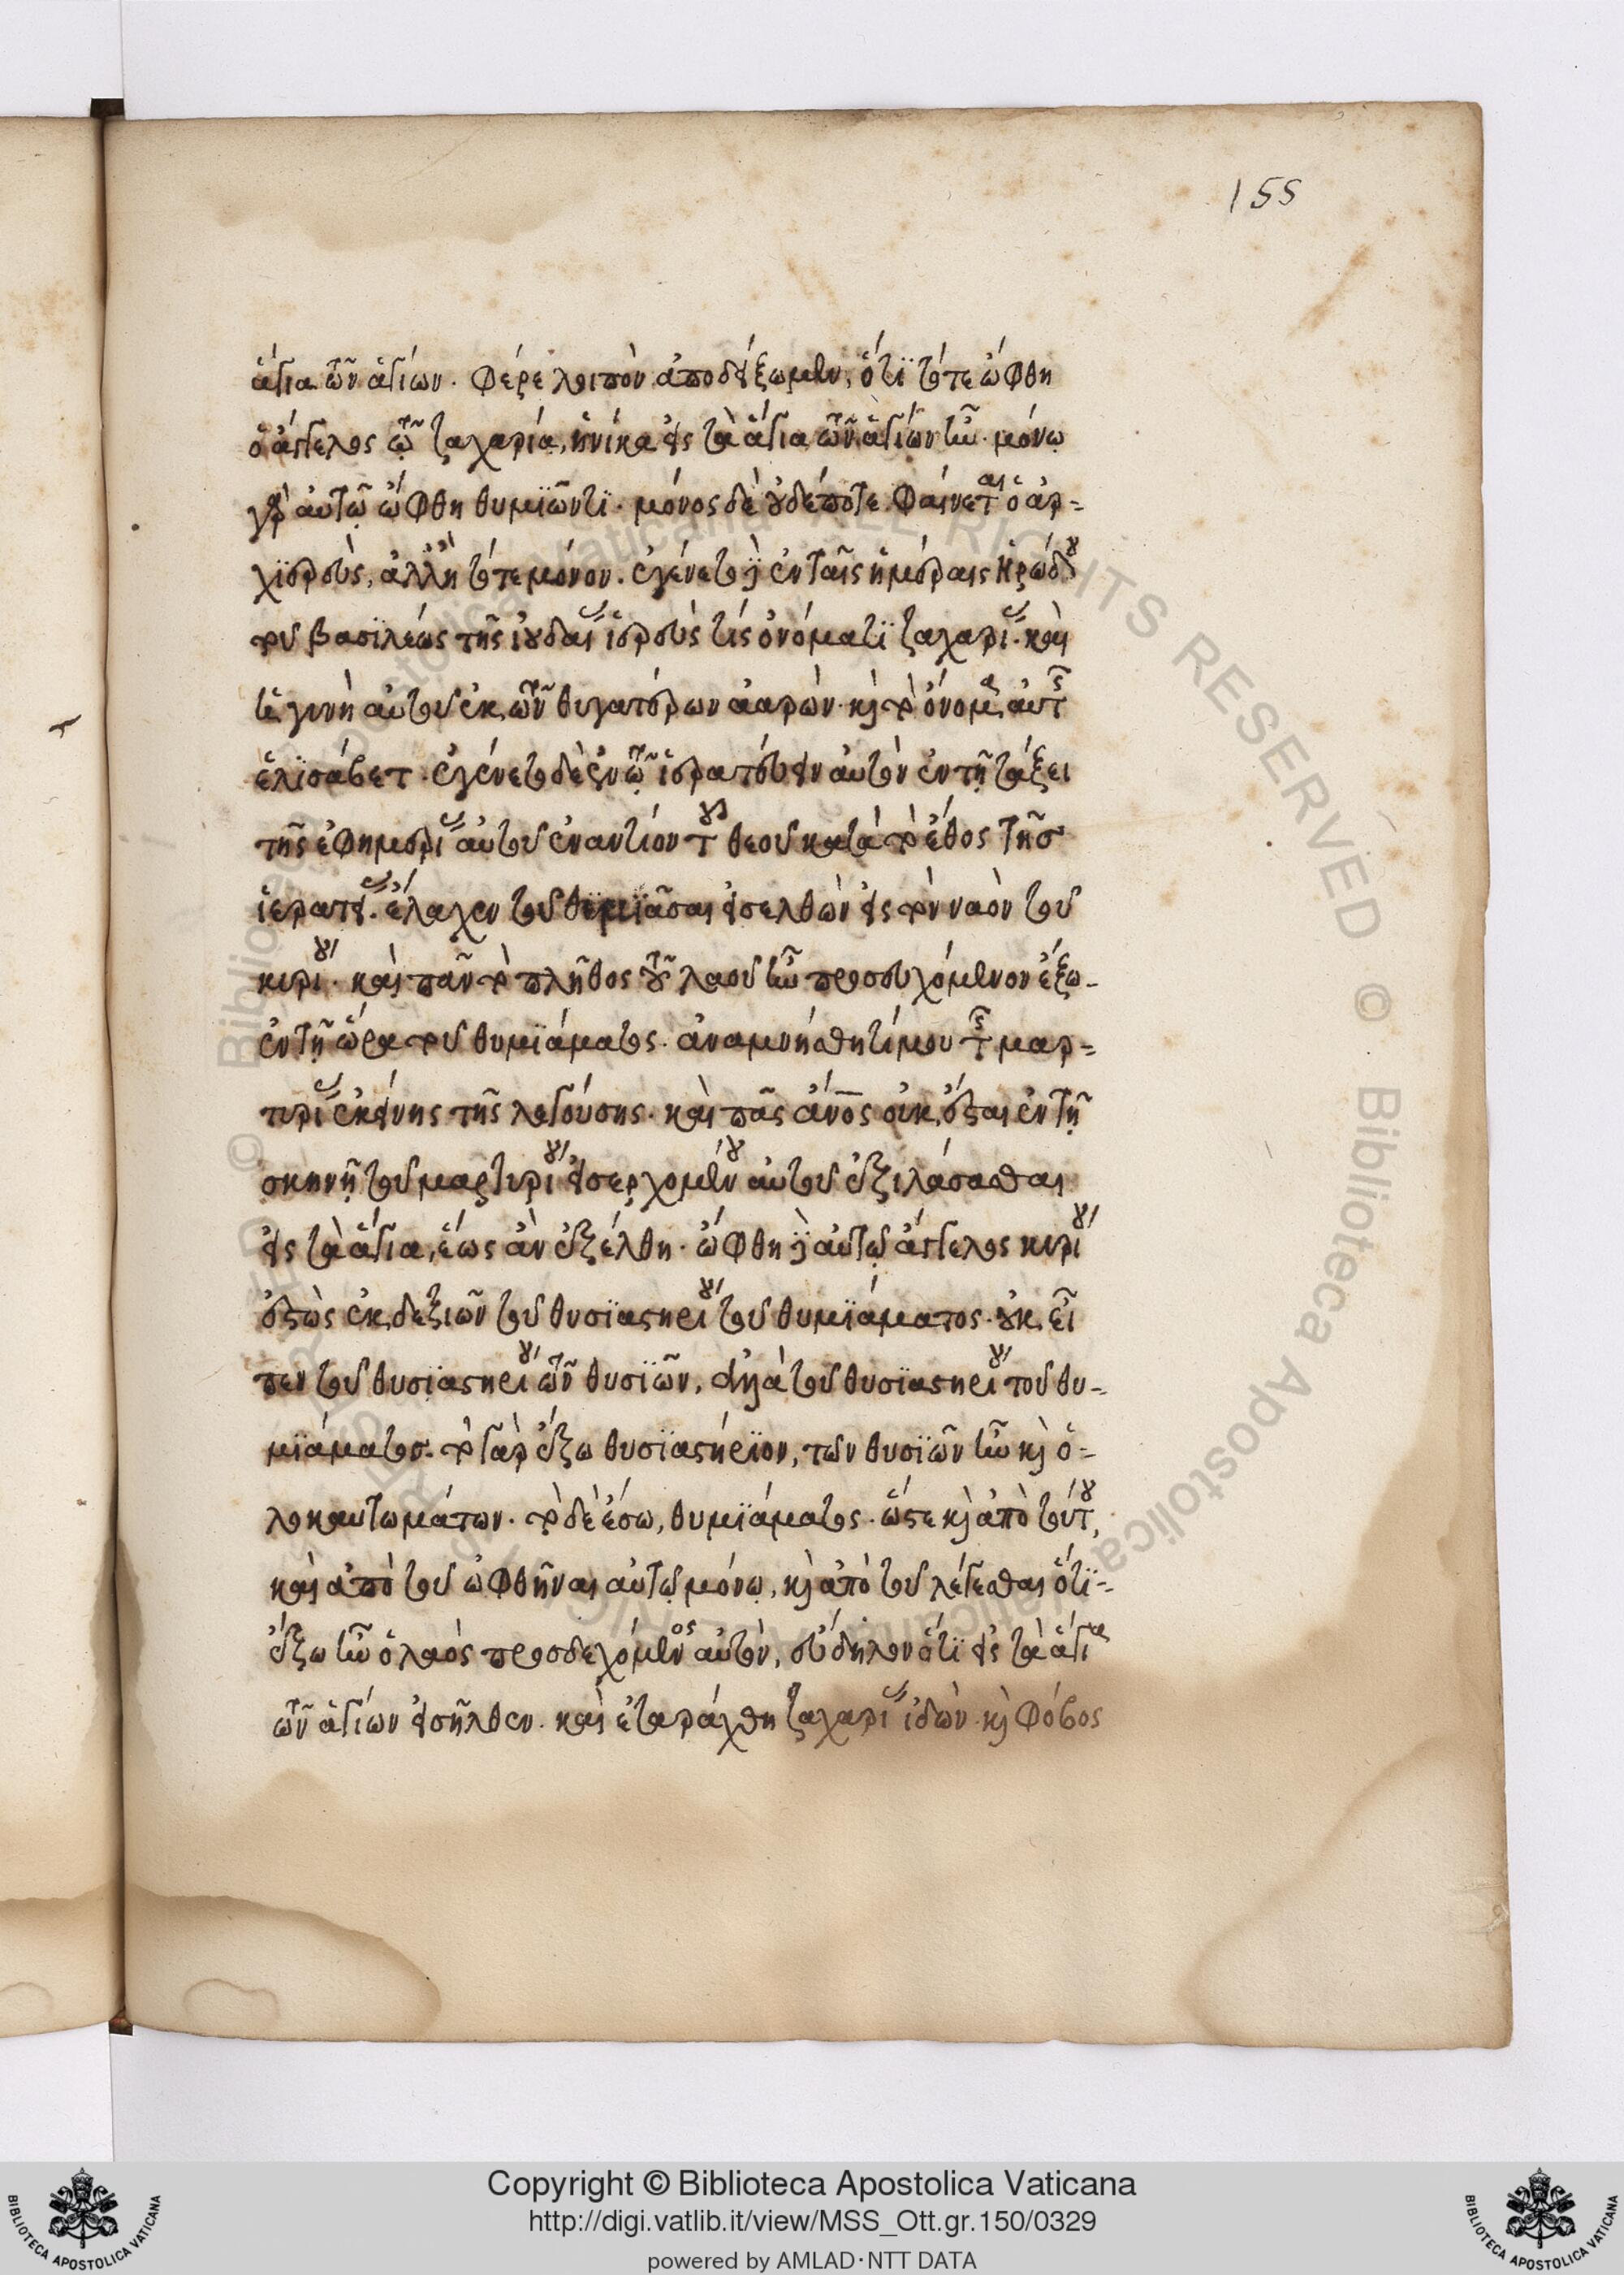 155
ἅγια τῶν ἁγίων. φέρε λοιπὸν ἀποδείξωμεν, ὅτϊ τότε ὤφθη
ὁ ἄγγελος τῷ ζαχαρία, ἡνίκα εἰς τὰ ἅγια τῶν ἁγίων ἦν. μόνω
γὰρ αὐτῷ ὤφθη θυμϊῶντϊ. μόνος δὲ οὐδέποτε φαίνεται ὁ ἀρ-
χϊερεὺς, ἀλλ' ἢ τότε μόνον. ἐγένετο γὰρ ἐν ταῖς ἡμέραις ἡρώδου
τοῦ βασϊλέως τῆς ἰουδαίας ἱερεὺς τίς ὀνόματϊ ζαχαρίας. καὶ
ἡ γυνὴ αὐτοῦ ἐκ τῶν θυγατέρων ἀαρών. καὶ τὸ ὄνομα αὐτῆς
ἐλϊσάβετ. ἐγένετο δὲ ἐν τῷ ἱερατεύειν αὐτὸν ἐν τῇ τάξει
τῆς ἐφημερίας αὐτοῦ ἐναντίον τοῦ θεοῦ κατὰ τὸ ἔθος τῆσ
ἱερατείας. ἔλαχεν τοῦ θυμϊᾶσαι εἰσελθὼν εἰς τὸν ναὸν τοῦ
κυρίου. καὶ πᾶν τὸ πλῆθος τοῦ λαοῦ ἦν προσευχόμενον ἔξω-
ἐν τῇ ὥρα τοῦ θυμϊάματος. ἀναμνήσθητί μου τῆς μαρ-
τυρίας ἐκείνης τῆς λεγούσης. καὶ πᾶς ἄνος οὐκ ἔσται ἐν τῇ
σκηνῇ τοῦ μαρτυρίου εἰσερχομένου αὐτοῦ ἐξιλάσασθαι
εἰς τὰ ἅγια, ἕως ἂν ἐξέλθη. ὤφθη γὰρ αὐτῷ ἄγγελος κυρίου
ἑστὼς ἐκ δεξιῶν τοῦ θυσϊαστηρίου τοῦ θυμϊάματος. οὐκ εἶ
πεν τοῦ θυσϊαστηρίου τῶν θυσϊῶν, ἀλλὰ τοῦ θυσϊαστηρίου τοῦ θυ-
μϊάματοσ. τὸ γὰρ ἔξω θυσϊαστήρϊον, τῶν θυσϊῶν ἦν καὶ ὁ-
λοκαυτωμάτων. τὸ δὲ ἔσω, θυμϊάματος. ὥστε καὶ ἀπὸ τούτου,
καὶ ἀπὸ τοῦ ὀφθῆναι αὐτῷ μόνῳ, καὶ ἀπὸ τοῦ λέγεσθαι ὅτϊ-
ἔξω ἦν ὁ λαὸς προσδεχόμενος αὐτὸν, εὔδηλον ὅτϊ εἰς τὰ ἅγια
τῶν ἁγίων εἰσῆλθεν. καὶ ἐταράχθη ζαχαρίας ἰδὼν. καὶ φόβος
Copyright © Biblioteca Apostolica Vaticana
http://digi.vatlib.it/view/MSS_Ott.gr.150/0329
powered by AMLAD·NTT DATA
BIBLIOTECA APOSTOLICA VATICANA
BIBLIOTECA APOSTOLICA VATICANA